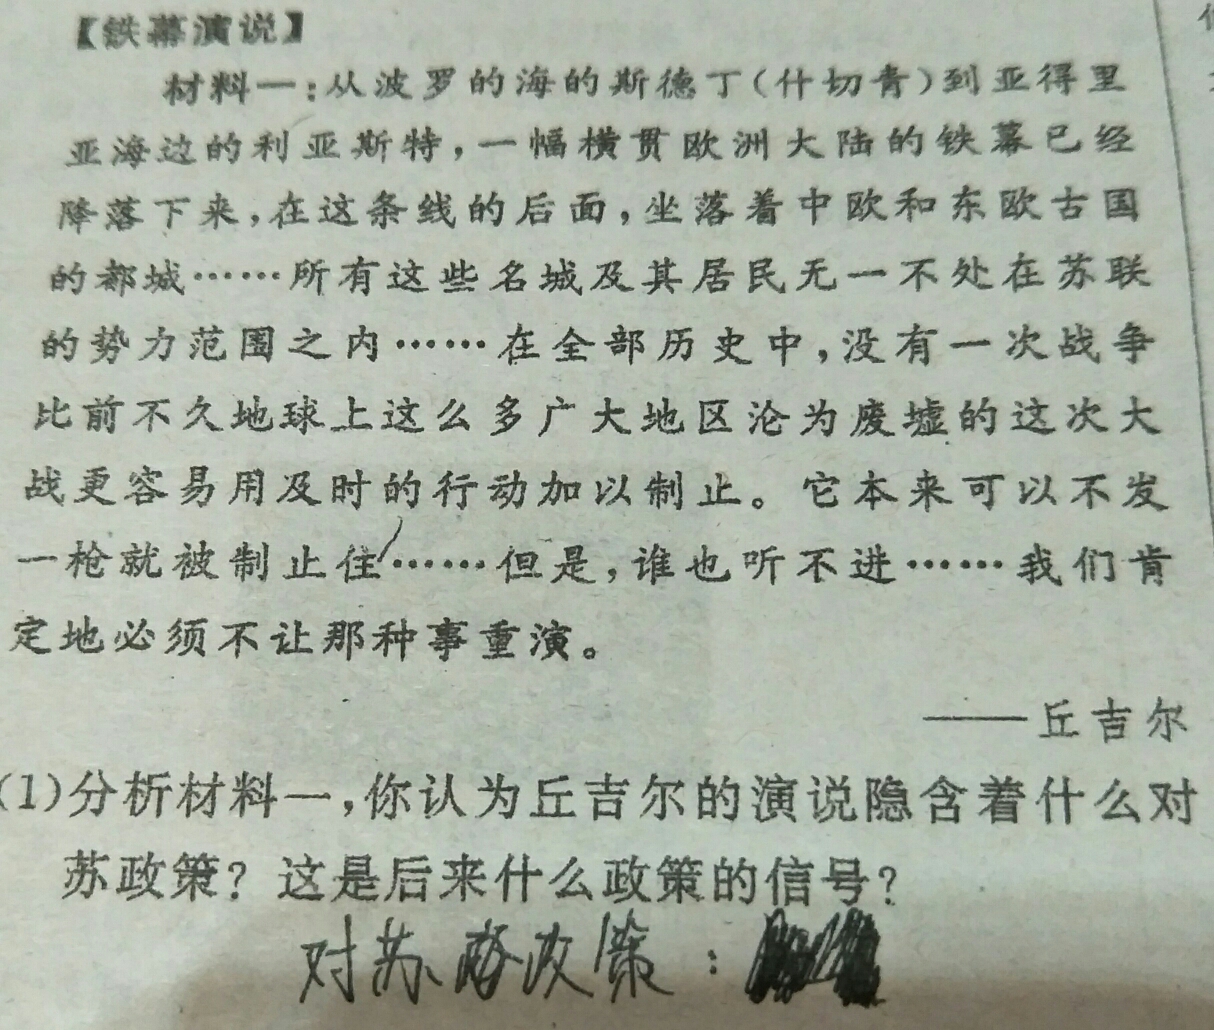 【铁幕演说】
材料一:从波罗的海的斯德丁(什切青)到亚得里
亚海边的利亚斯特,一幅横贯欧洲大陆的铁幕已经
降落下来,在这条线的后面,坐落着中欧和东欧古国
的都城……所有这些名城及其居民无一不处在苏联
的势力范围之内……在全部历史中,没有一次战争
比前不久地球上这么多广大地区沦为废墟的这次大
战更容易用及时的行动加以制止。它本来可以不发
一枪就被制止住……但是,谁也听不进……我们肯
定地必须不让那种事重演。
——丘吉尔
(1)分析材料一,你认为丘吉尔的演说隐含着什么对
苏政策?这是后来什么政策的信号?
对苏政策: